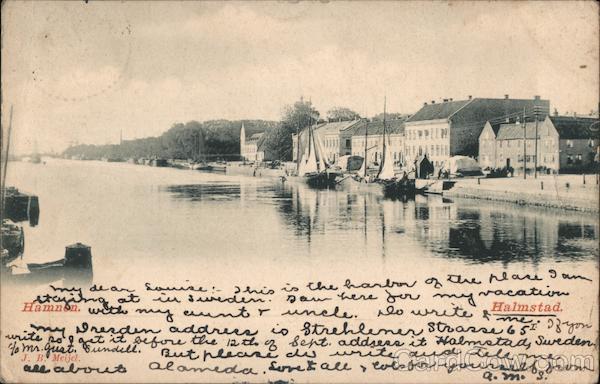 my dear Louise:- This is the harbor of the place I am
staying at in Sweden. I am here for my vacation
Hamnen.
Halmstad.
with my aunt & uncle. Do write &
my Dresden address is Strehlener Strasse 65 I If you
write so I get it before the 12th of Sept. address it Halmstad, Sweden,
c/o Mr. Gust. Sundell. But please do write and tell me
J. B. Meijel.
all about Alameda. Love to all, & lots for yourself from
CardCow.com